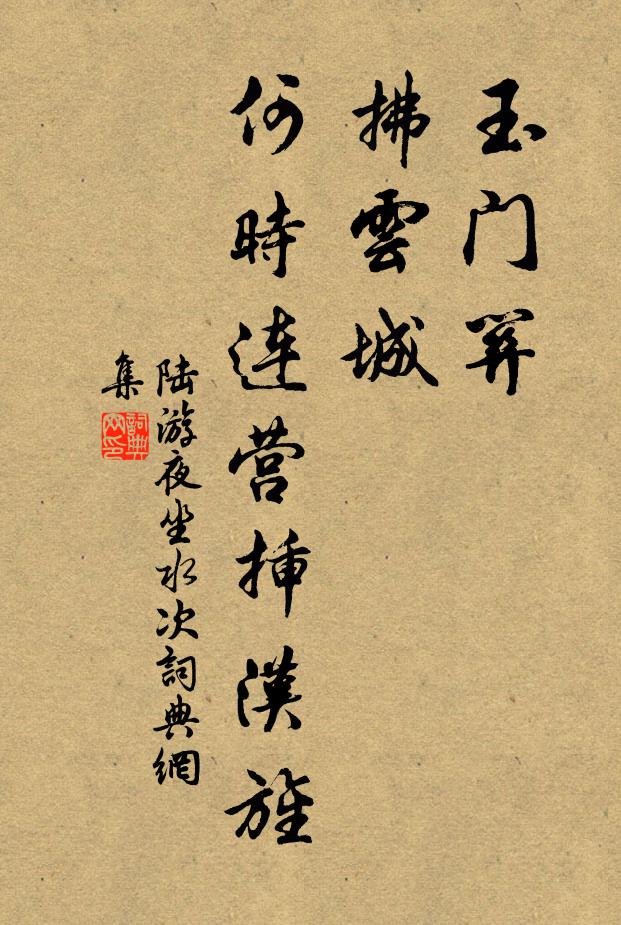 玉门关
拂雲城
何時連营插漢旌
陸游夜坐水次詞典網
集
詞典
网印